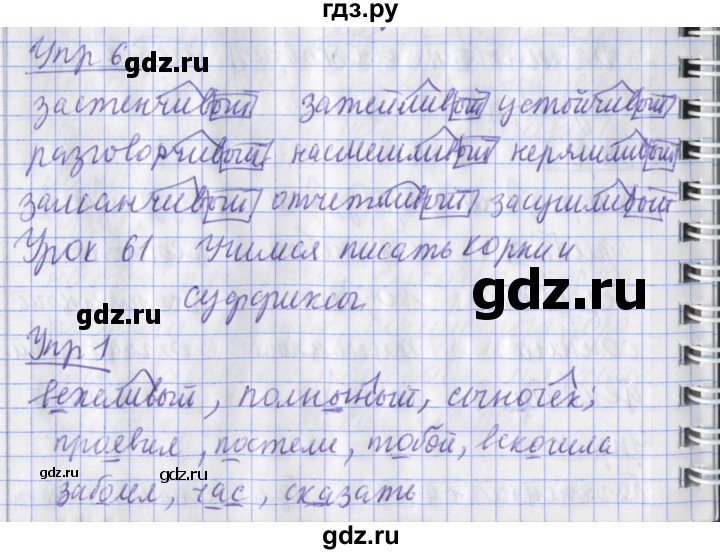 гдз.ру
Упр 6
застенчивый затейливый устойчивый
разговорчивый насмешливый неряшливый
заманчивый отчетливый засушливый
Урок 61 Учимся писать корни и
gdz.ru
gdz.ru
суффиксы
Упр 1
gdz.ru
вежливый, полныный, сыночек;
проевил, постели, тобой, вскочила
gdz.ru
gdz.ru
заболел, час, сказать
gdz.ru